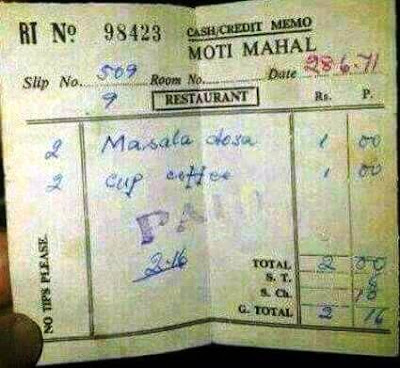 RT No. 98423 CASH/CREDIT MEMO
MOTI MAHAL
Slip No. 509 Room No. Date 28-6-71
9 RESTAURANT Rs. P.
2 Masala dosa 1 00
2 Cup coffee 1 00
PAID
2-16
NO TIPS PLEASE.
TOTAL 2 00
S. T.
S. Ch. 18
G. TOTAL 2 16